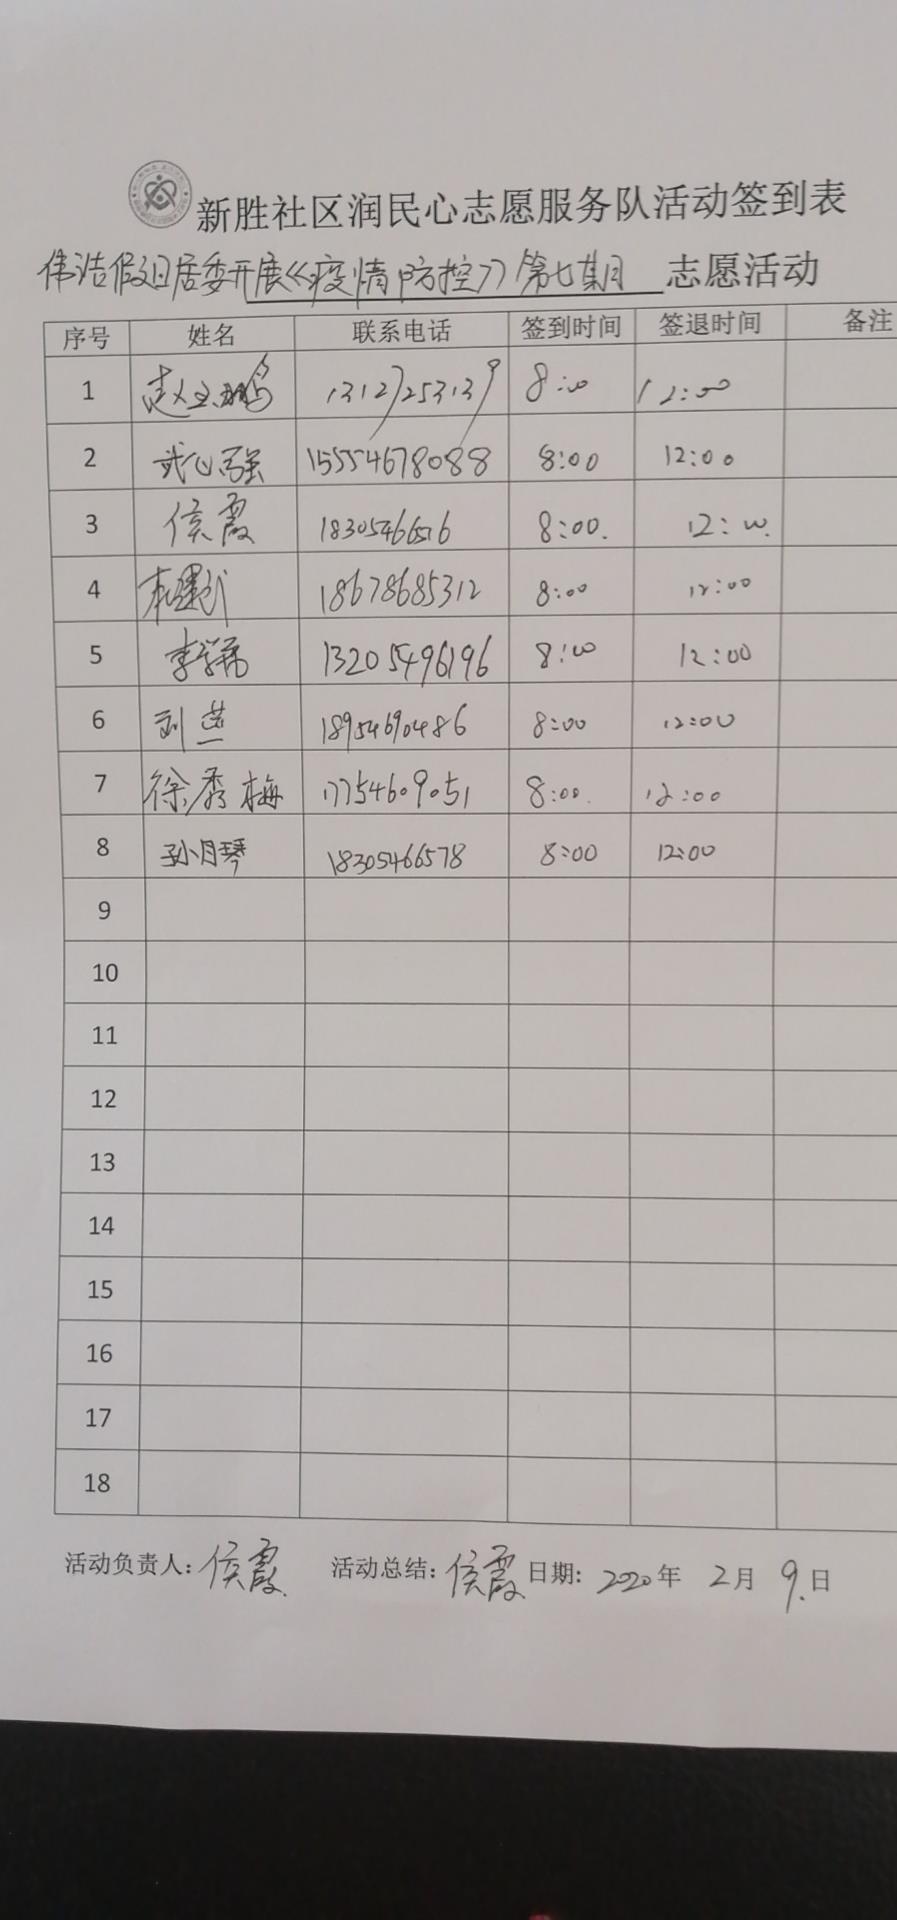 新胜社区润民心志愿服务队活动签到表
伟浩假日居委开展《疫情防控》第七期 志愿活动
序号 姓名 联系电话 签到时间 签退时间 备注
1 13127253139 8:00 12:00
2 15554678088 8:00 12:00
3 侯霞 8:00. 12:00.
4 18678685312 8:00 12:00
5 13205496196 8:00 12:00
6 刘燕 18954690486 8:00 12:00
7 徐秀梅 17754609051 8:00. 12:00
8 孙月琴 18305466578 8:00 12:00
9
10
11
12
13
14
15
16
17
18
活动负责人: 侯霞 活动总结: 侯霞 日期: 2020年 2月 9.日